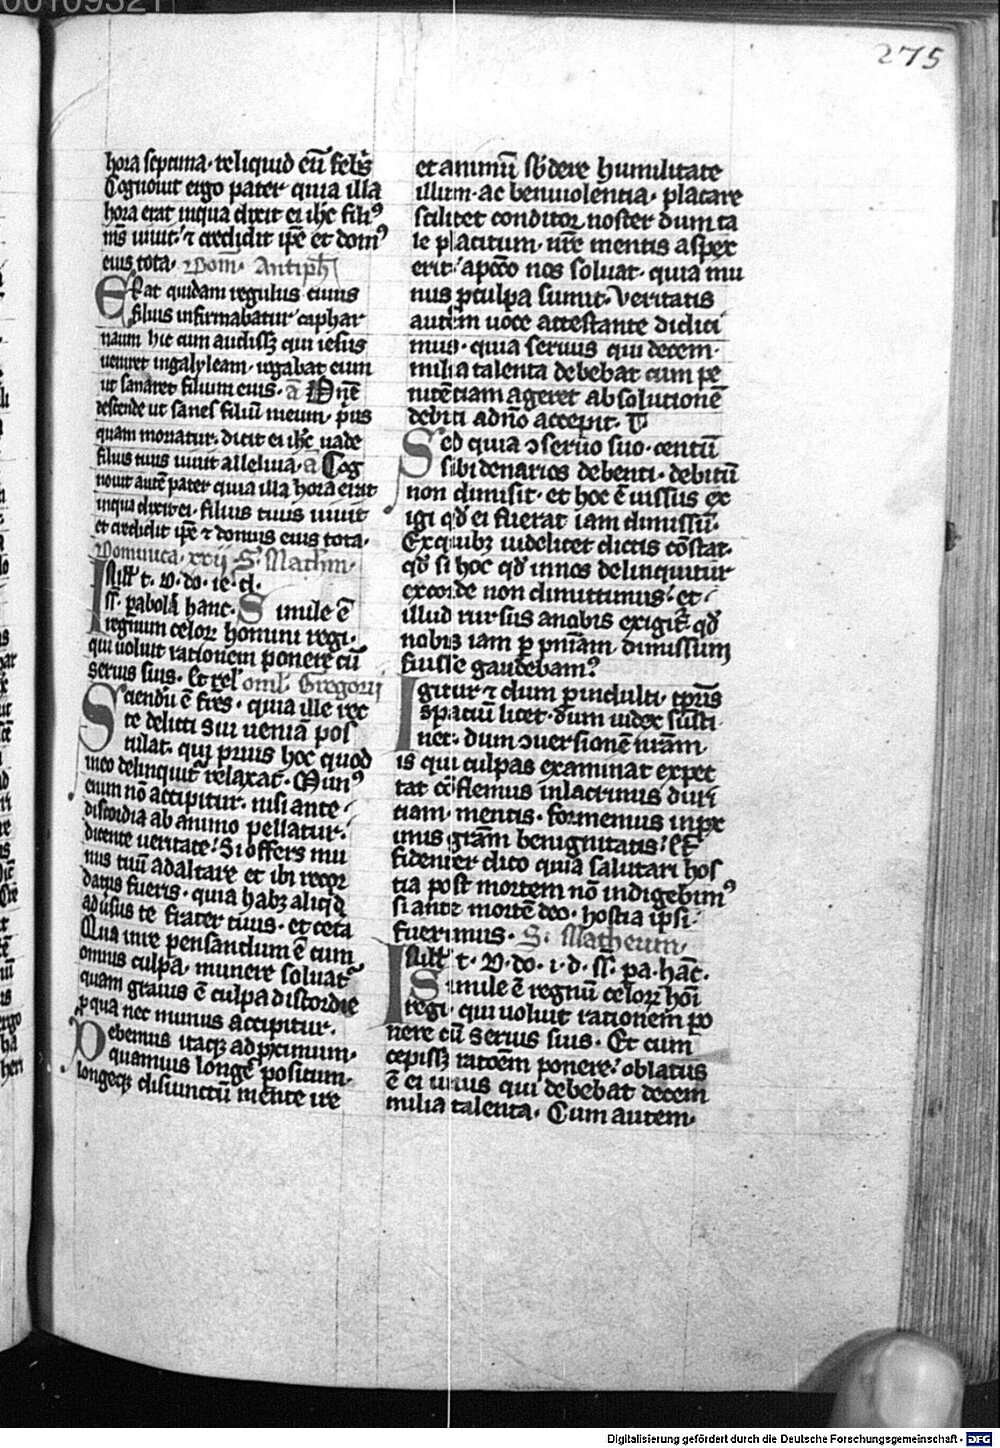 00109321
275
hora septima· reliquid eū febrꝭ
Cognouit ergo pater quia illa
hora erat inqua dixit ei ihc̄ fili⁹
tuus uiuit· ⁊ credidit ip̄e et dom⁹
eius tota· Antiph̄
ERat quidam regulus cuius
filius infirmabatur caphar
naum hic cum audissꝫ qui iesus
ueniret ingalyleam· rogabat eum
ut sanaret filium eius· a Dn̄e
descende ut sanes filiū meum· p̄us
quam moriatur· dicit ei ihc̄ uade
filius tuus uiuit alleluia· a Cog
nouit autē pater quia illa hora erat
inqua dixit ei· filius tuus uiuit
et credidit ip̄e ⁊ domus eius tota·
Dominica· xxij S· Mathm̄·
In illo t· d· do· ie· d·
ss̄· pabolā hanc· Simile ē
regnum celoꝝ homini regi·
qui uoluit rationem ponere cū
seruis suis· Et rel̄ omil· Gregorij
Sciendū ē fr̄es· quia ille rec
te delicti sui ueniā pos
tulat· qui prius hoc quod
ineo delinquit̄ relaxat· Mun⁹
enim nō accipitur· nisi ante
discordia ab animo pellatur·
dicente ueritate· Si offers mu
nus tuū adaltare et ibi recor
datus fueris· quia habꝫ aliqd
aduersus te frater tuus· et ceta
Qua in re pensandum ē cum
omnis culpa· munere soluat̄
quam grauis ē culpa discordie
ꝓ qua nec munus accipitur·
Debemus itaqꝫ ad pximum·
quamuis longe positum·
longeqꝫ disiunctū mente ire
et animū sb̄dere humilitate
illum· ac beniuolentia· placare
scilicet conditor noster dum ta
le placitum· nr̄e mentis aspex
erit· apcc̄o nos soluat· quia mu
nus pculpa sumit· Veritatis
autem uoce attestante didici
mus· quia seruus qui decem·
milia talenta debebat cum pe
nitēciam ageret absolutionē
debiti adn̄o accepit· V
Sed quia ɔseruo suo· centū
sibi denarios debenti· debitū
non dimisit· et hoc ē iussus ex
igi qd̄ ei fuerat iam dimissū·
Exquibꝫ uidelicet dictis cōstat·
qd̄ si hoc qd̄ innos delinquitur
excorde non dimittimus· et
illud rursus anobis exigit̄ qd̄
nobis iam ꝑ pn̄iam dimissum
fuisse gaudebam⁹
Igitur ⁊ dum ꝑ indulti· tꝑis
spatiū licet· dum iudex susti
net· dum ɔuersionē nr̄am·
is qui culpas examinat expec
tat cōflemus inlacrimis duri
ciam· mentis· formemus inpx
imis grām benignitatis· Et
fidenter dico quia salutari hos
tia post mortem nō indigebim⁹
si ante mortē deo· hostia ipsi·
fuerimus· S· Matheum·
In illo t· d· do· i· d· ss̄· pa· hāc·
Simile ē regnū celoꝝ hoī
regi· qui uoluit rationem po
nere cū seruis suis· Et cum
cepissꝫ ratoēm ponere· oblatus
ē ei unus qui debebat decem
milia talenta· Cum autem·
Digitalisierung gefördert durch die Deutsche Forschungsgemeinschaft - DFG